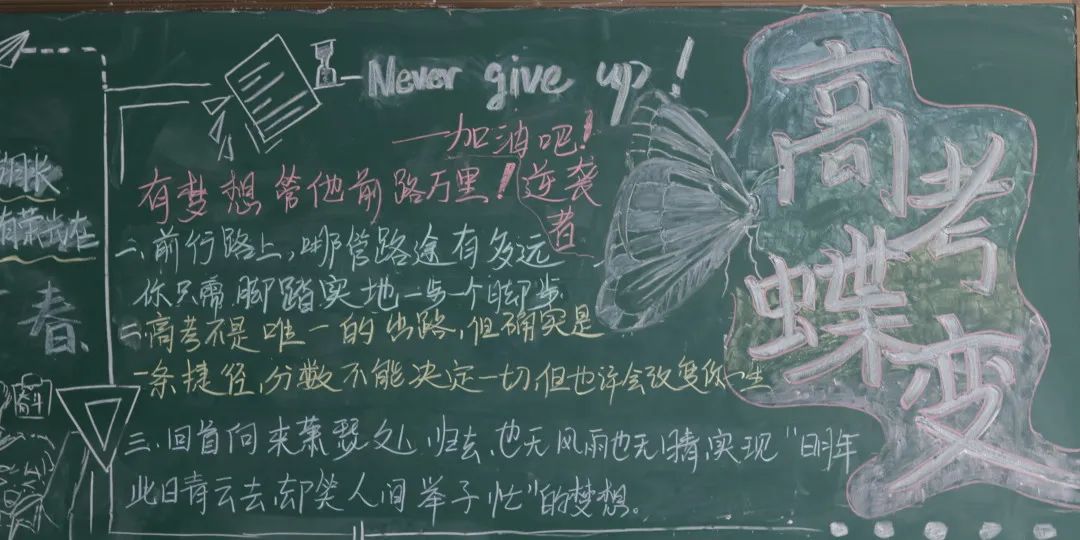 Never give up!
一加油吧!
有梦想管他前路万里!逆袭者
一、前行路上,哪管路途有多远
你只需脚踏实地一步一个脚步
二高考不是唯一的出路,但确实是
一条捷径,分数不能决定一切,但也许会改变你一生
三、回首向来萧瑟处,归去,也无风雨也无晴,实现“明年
此日青云去,却笑人间举子忙”的梦想。
高考
蝶变
有荣我在
春、
奋斗